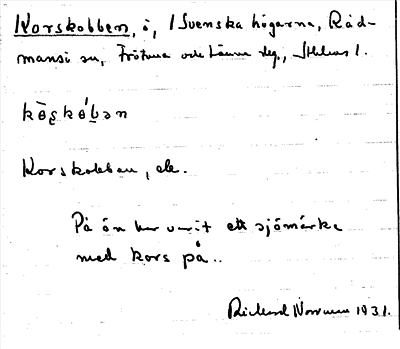 Korskobben, ö, i Svenska högarna, Råd-
mansö sn, Frötuna och Länna skg., Sthlms l.
Korskobban, ek.
På ön har varit ett sjömärke
med kors på..
Rickard Norrman 1931.